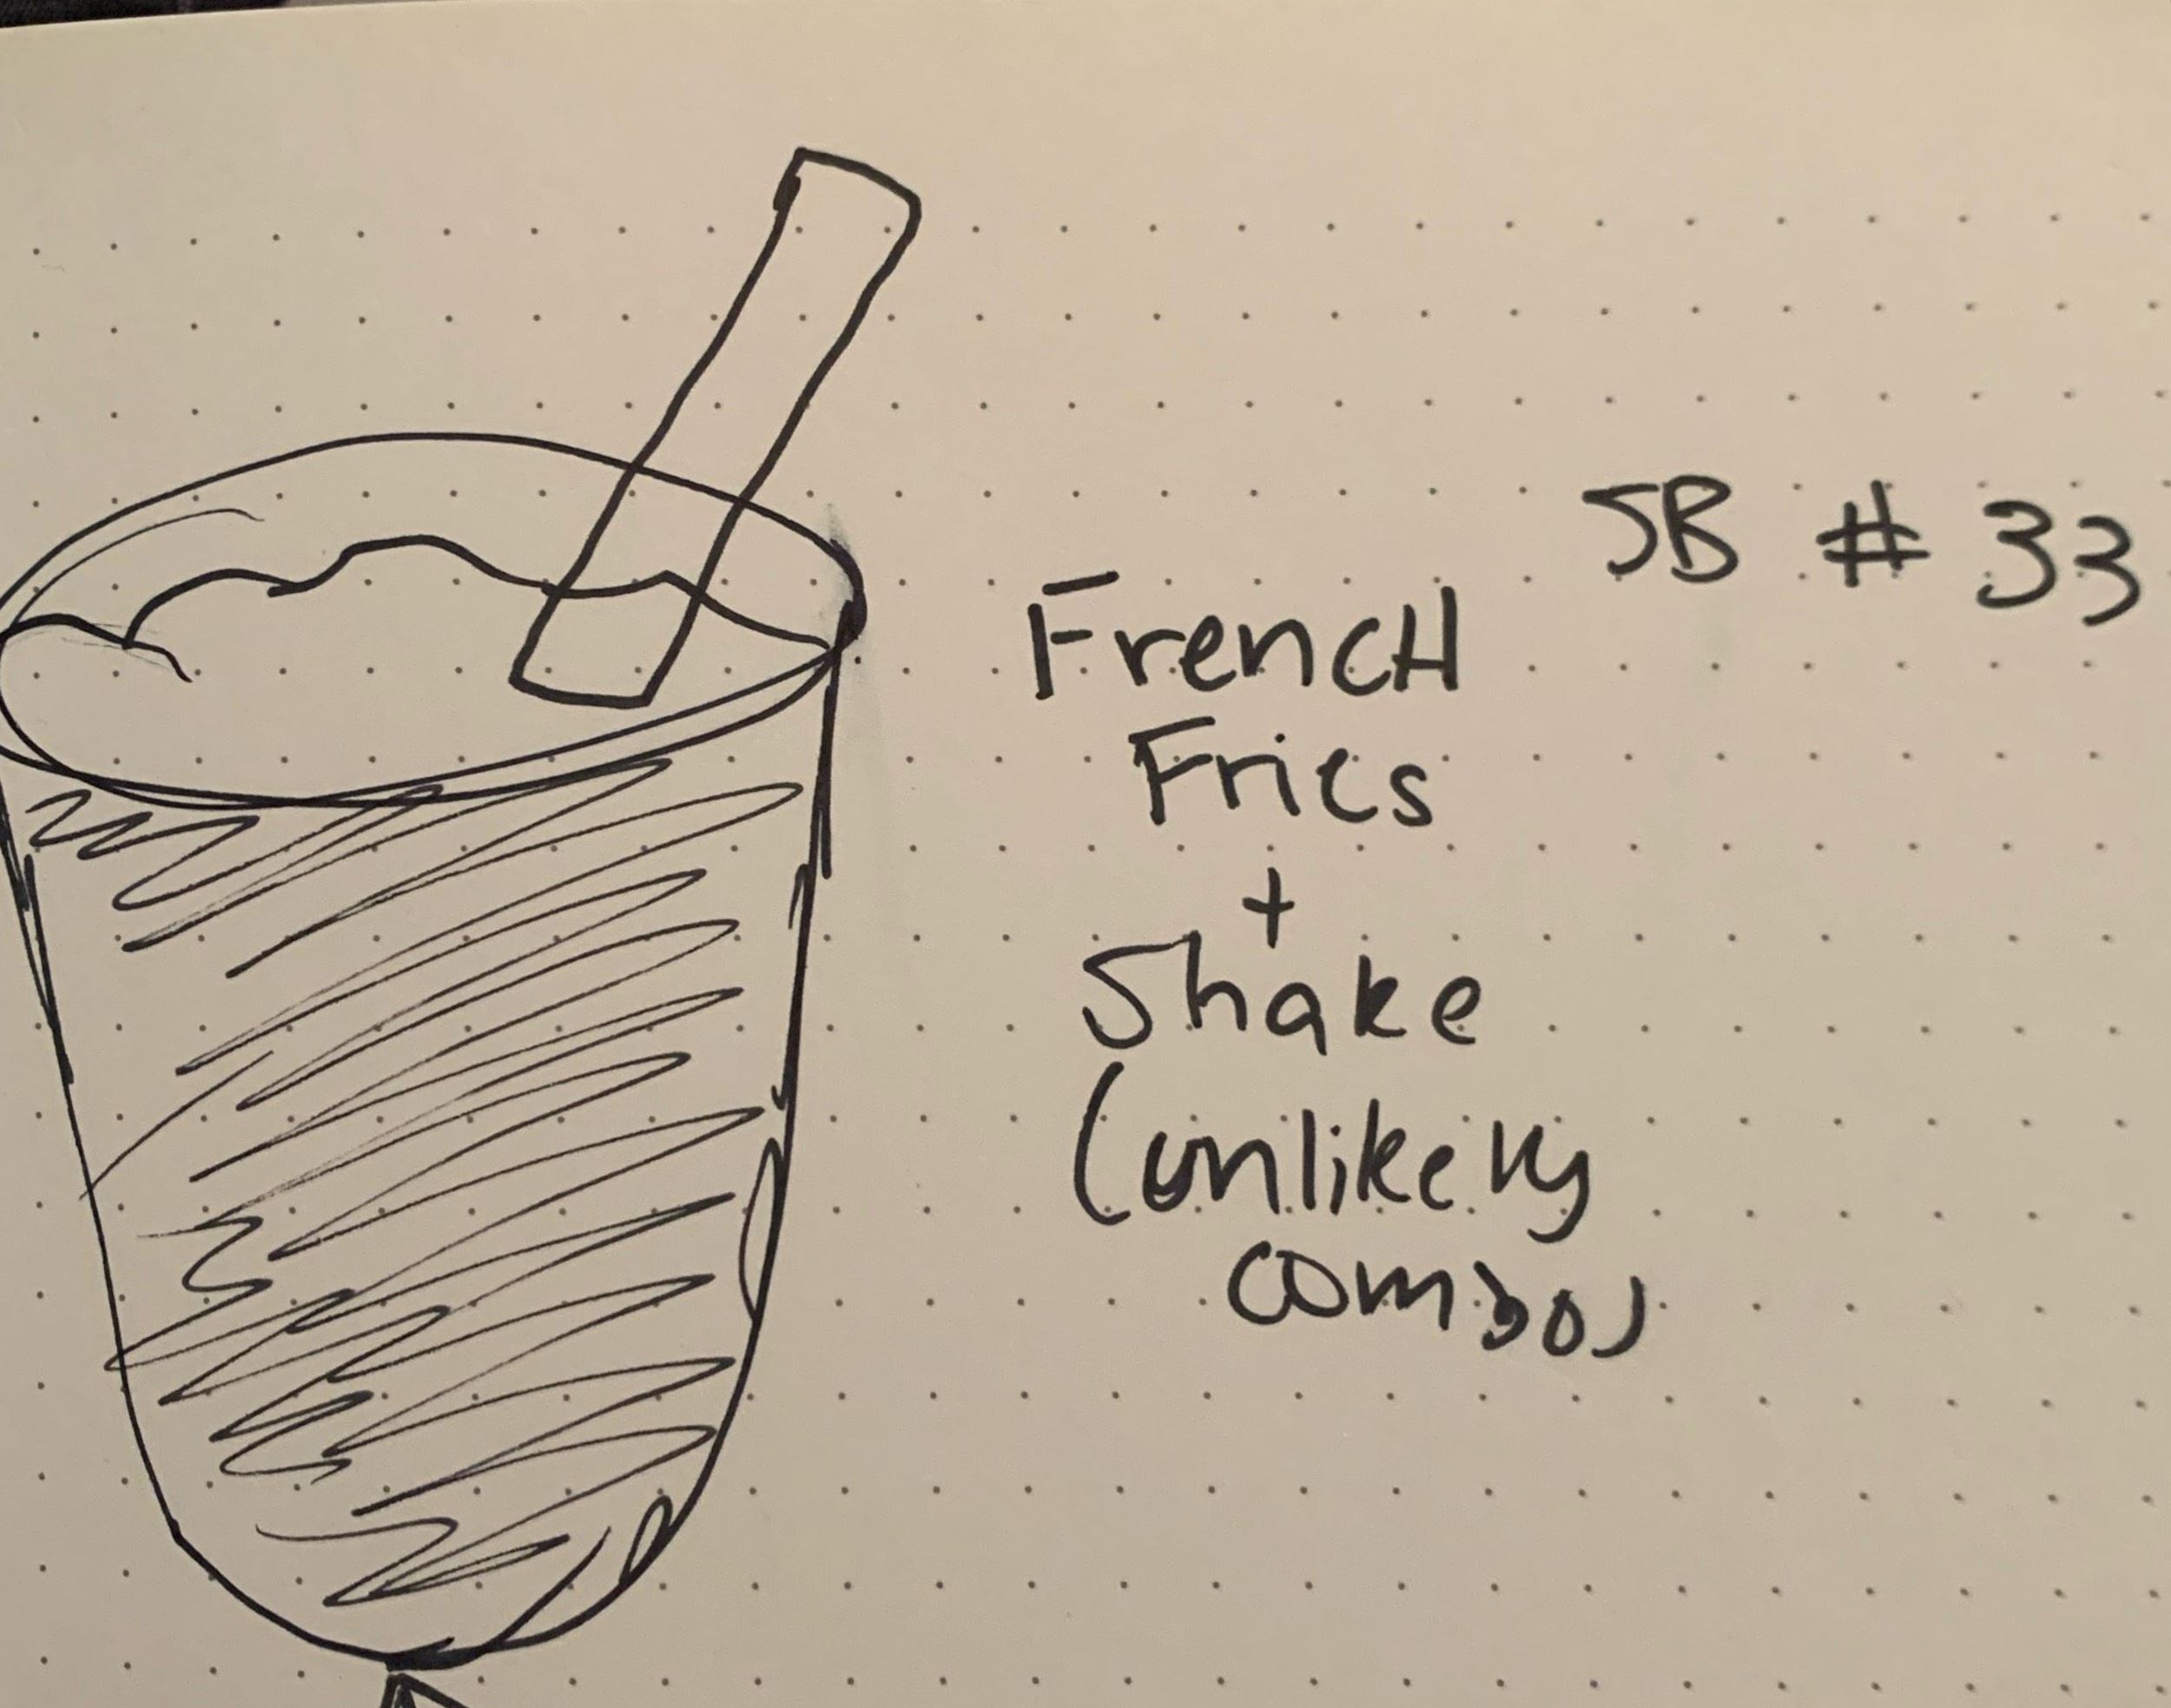 SB # 33
FrencH
Fries
+
Shake
(unlikely
combo)